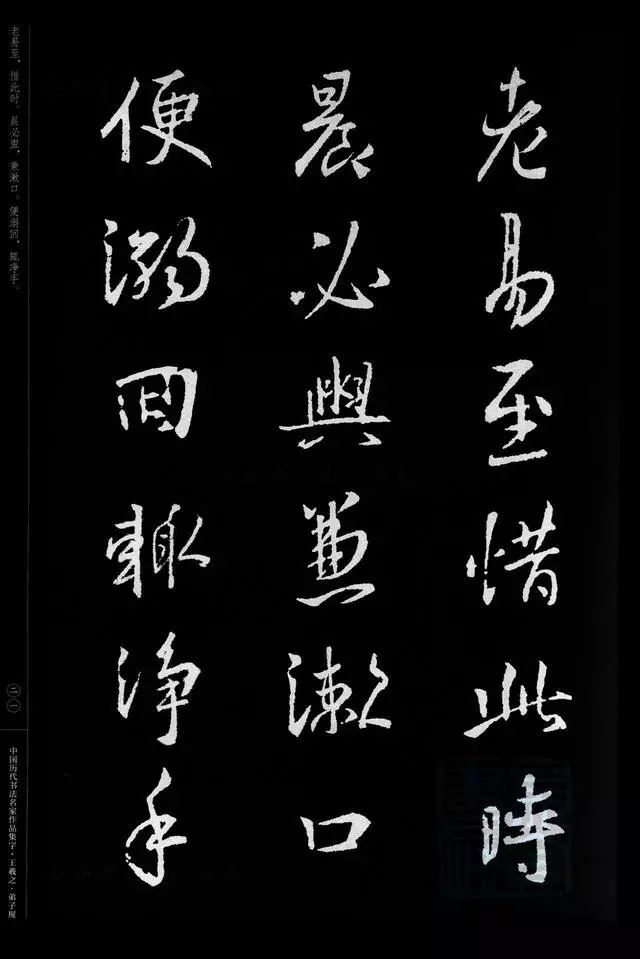 老易至惜此時
晨必興兼漱口
便溺回輒淨手
老易至，惜此时。晨必盥，兼漱口。便溺回，辄净手。
二一
中国历代书法名家作品集字·王羲之·弟子规